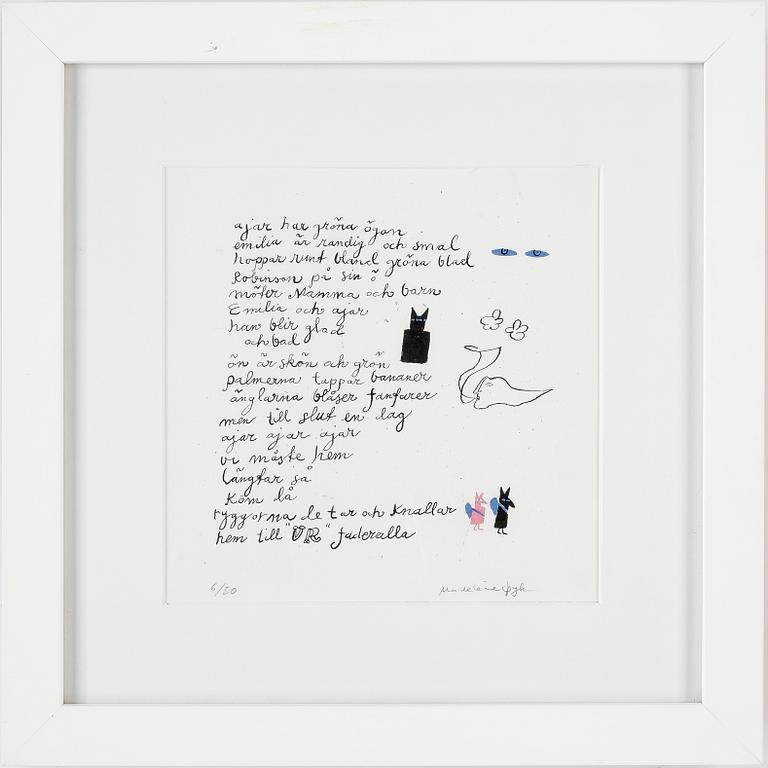 ajar har gröna ögon
emilia är randig och smal
hoppar runt bland gröna blad
Robinson på sin ö
möter Mamma och barn
Emilia och ajar
han blir glad
och bad
ön är skön och grön
palmerna tappar bananer
änglarna blåser fanfarer
men till slut en dag
ajar ajar ajar
vi måste hem
längtar så
Kom då
ryggorna de tar och Knallar
hem till "UR" faderalla
6/50
Madeleine Pyk